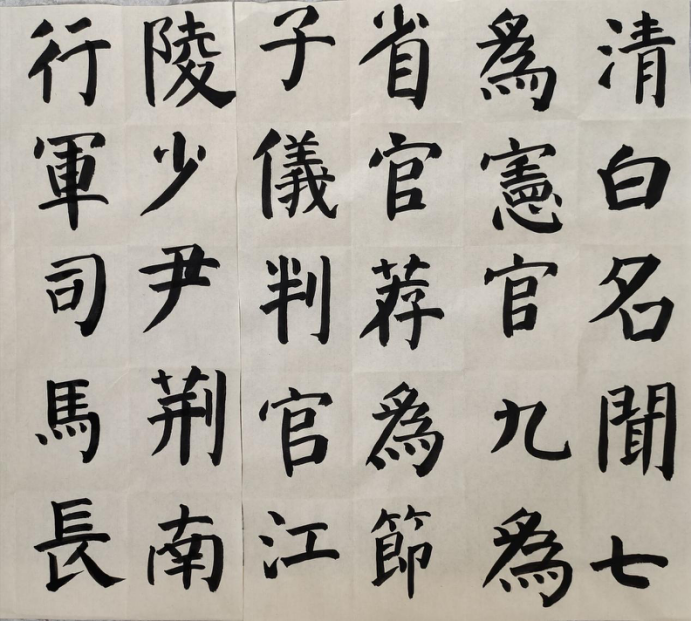 清白名聞七
為憲官九為
省官荐為節
子儀判官江
陵少尹荆南
行軍司馬長